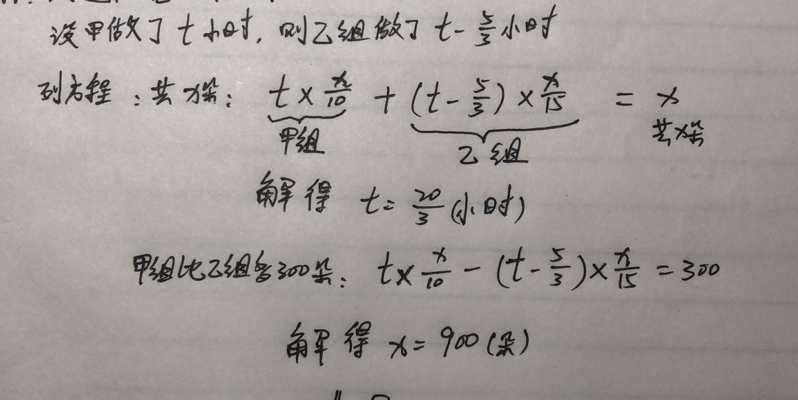 设甲做了 t 小时, 则乙组做了 t - 5/3 小时
列方程: 共 x朵: t × x/10 + (t - 5/3) × x/15 = x
甲组 乙组 共x朵
解得 t = 20/3 (小时)
甲组比乙组多300朵: t × x/10 - (t - 5/3) × x/15 = 300
解得 x = 900 (朵)